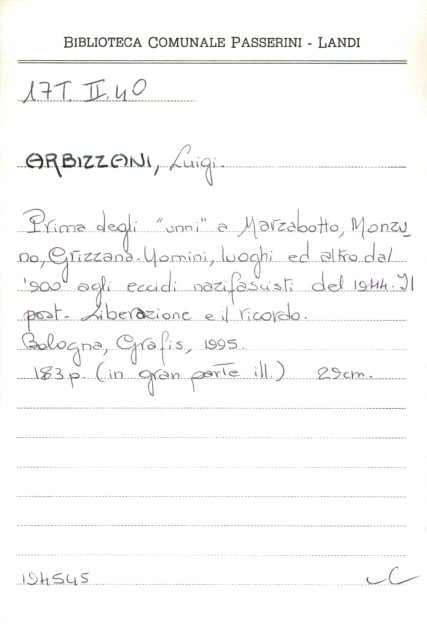 BIBLIOTECA COMUNALE PASSERINI - LANDI
17T. II. 40
ARBIZZANI, Luigi.
Prima degli "unni" a Marzabotto, Monzu
no, Grizzana. Uomini, luoghi ed altro dal
'900 agli eccidi nazifascisti del 1944. Il
post-Liberazione e il ricordo.
Bologna, Grafis, 1995.
183 p. (in gran parte ill.) 29cm.
194545